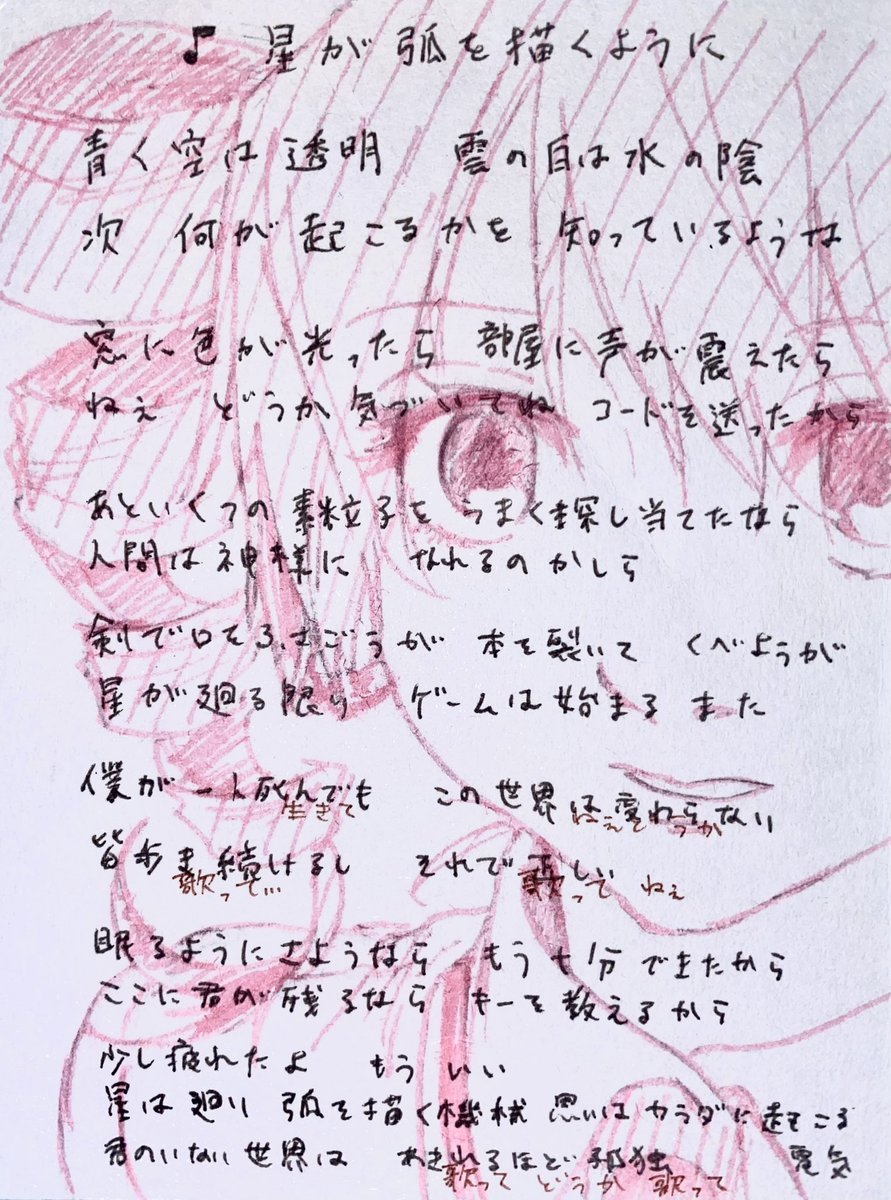 ♪ 星が弧を描くように
青く空は透明 雲の白は水の陰
次 何が起こるかを 知っているような
窓に色が光ったら 部屋に声が震えたら
ねえ どうか気づいてね コードを送ったから
あといくつの素粒子を うまく探し当てたなら
人間は神様に なれるのかしら
剣で口をふさごうが 本を裂いて くべようが
星が廻る限り ゲームは始まる また
僕が一人死んでも この世界は変わらない
生きて ねえどうか
皆歩き続けるし それで正しい
歌って… 歌って ねぇ
眠るようにさようなら もう十分できたから
ここに君が残るなら キーを教えるから
少し疲れたよ もう いい
星は廻り 弧を描く機械 思いはカラダに起こる
君のいない世界は あきれるほど孤独 電気
歌って どうか 歌って